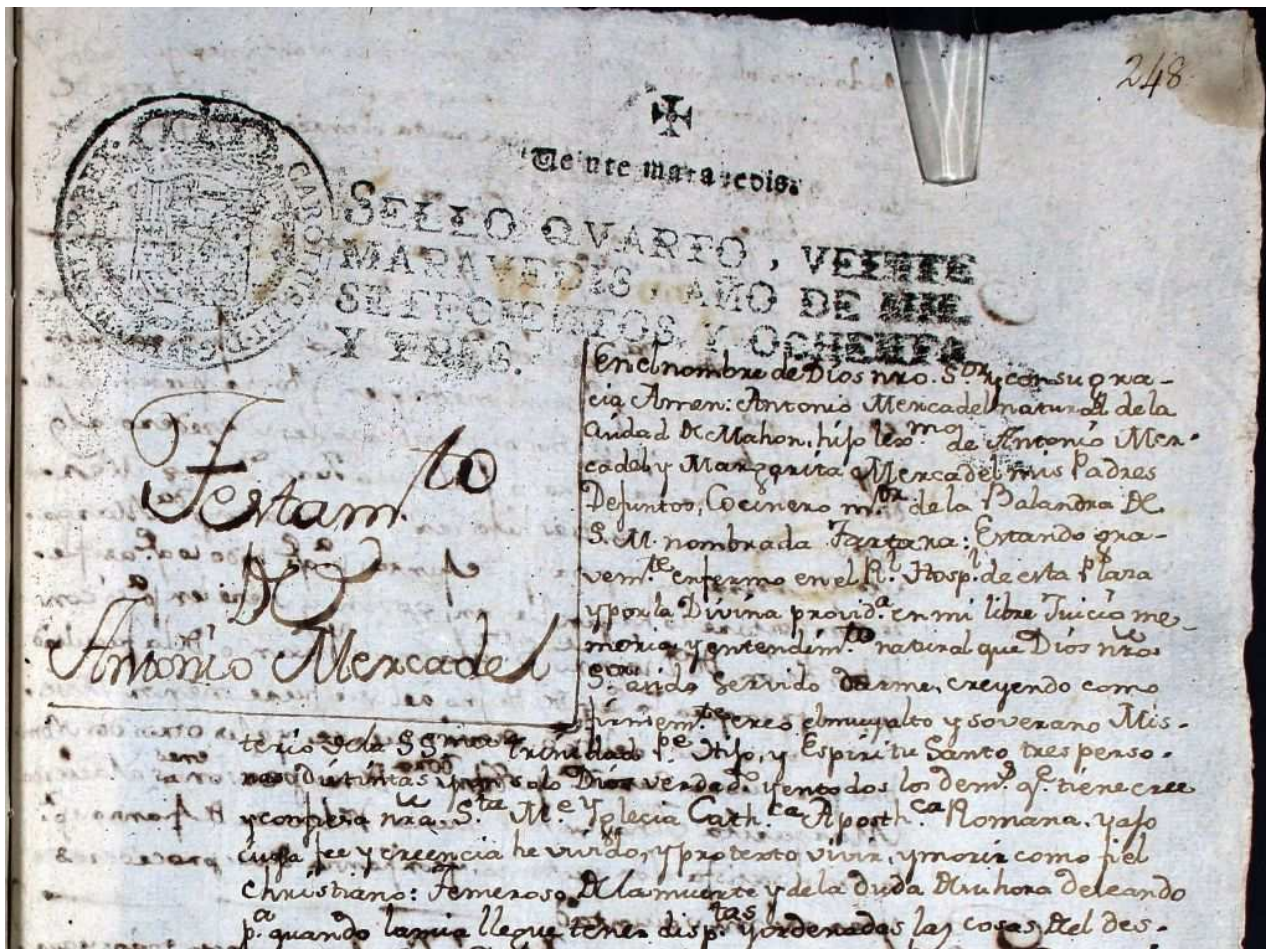 248
Veinte maravedis.
SELLO QVARTO, VEINTE
MARAVEDIS, AÑO DE MIL
SETECIENTOS Y OCHENTA
Y TRES.
CAROLUS III D G
Testam.to
DE
Antonio Mercadel
En el nombre de Dios nro. S.or y con su gra-
cia Amen: Antonio Mercadel natural de la
Ciudad de Mahon, hijo lexmo. de Antonio Mer-
cadel, y Margarita Mercadel mis Padres
Defuntos, Cocinero m.or de la Balandra de
S. M. nombrada Tartara: Estando gra-
vem.te enfermo en el Rl. Hospl. de esta Plaza
y por la Divina provid.a en mi libre Juicio me-
moria y entendim.to natural que Dios nro
S.or a sido servido darme, creyendo como
firmem.te creo el muy alto y soverano Mis-
terio de la SSma trinidad P.e Hijo, y Espiritu Santo tres perso-
nas distintas y un solo Dios verdad.o y en todos los dem.s q.e tiene cree
y confiesa nra. S.ta M.e Yglecia Cath.ca Aposth.ca Romana, vajo
cuya fee y creencia he vivido, y protexto vivir, y morir como fiel
christiano: Temeroso de la muerte y de la duda de su hora deseando
p.a quando la mia llegue tener disp.tas y ordenadas las cosas del des-